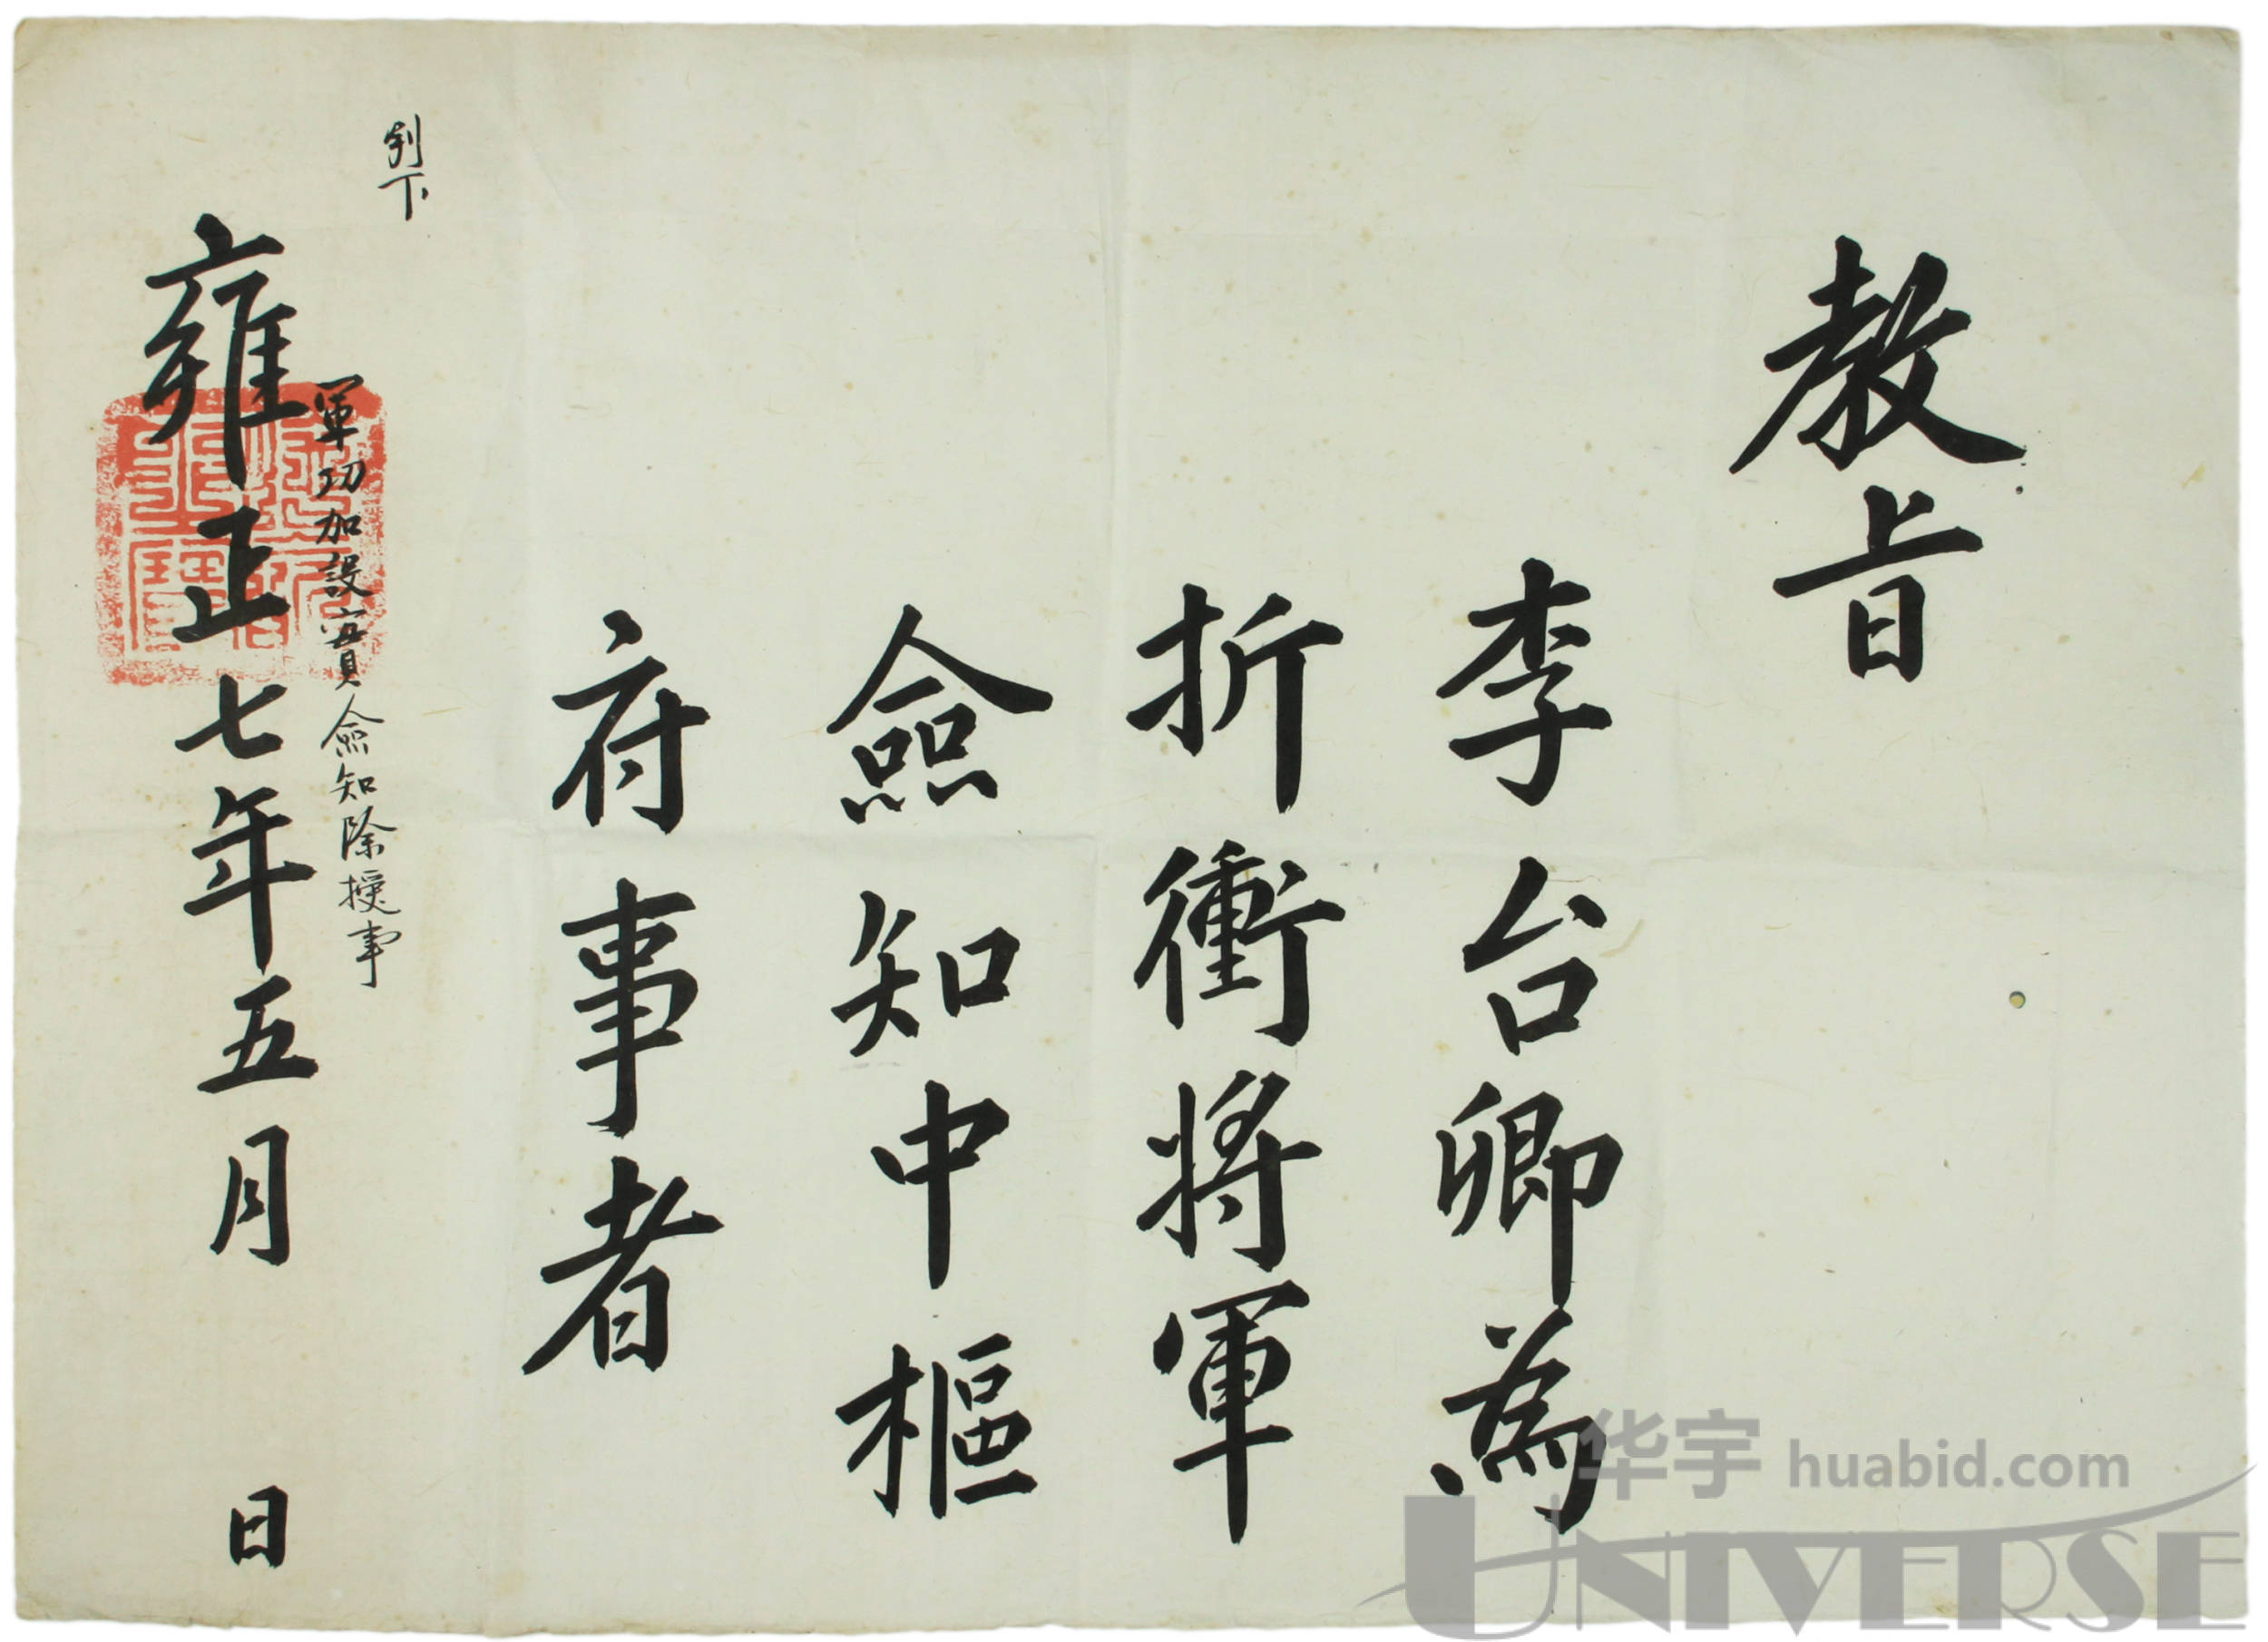 教旨
李台卿為
折衝將軍
僉知中樞
府事者
判下
軍功加設實僉知除授事
雍正七年五月 日
华宇 huabid.com
UNIVERSE